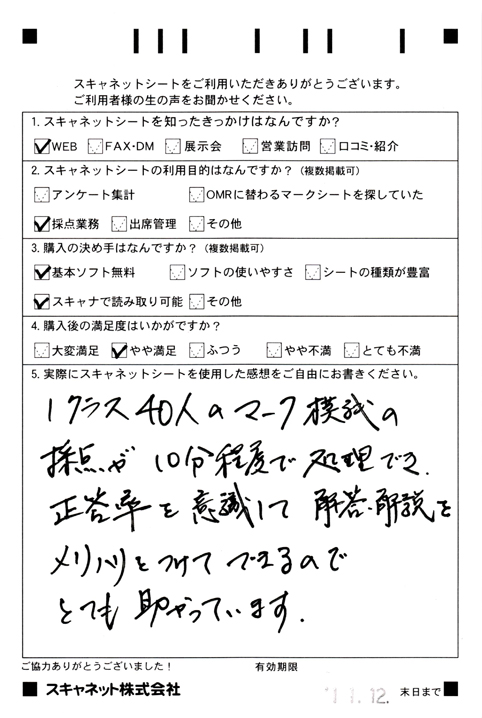 スキャネットシートをご利用いただきありがとうございます。
ご利用者様の生の声をお聞かせください。
1. スキャネットシートを知ったきっかけはなんですか？
WEB FAX・DM 展示会 営業訪問 口コミ・紹介
2. スキャネットシートの利用目的はなんですか？（複数掲載可）
アンケート集計 OMRに替わるマークシートを探していた
採点業務 出席管理 その他
3. 購入の決め手はなんですか？（複数掲載可）
基本ソフト無料 ソフトの使いやすさ シートの種類が豊富
スキャナで読み取り可能 その他
4. 購入後の満足度はいかがですか？
大変満足 やや満足 ふつう やや不満 とても不満
5. 実際にスキャネットシートを使用した感想をご自由にお書きください。
1クラス40人のマーク模試の
採点が10分程度で処理でき.
正答率を意識して解答・解説を
メリハリをつけてできるので
とても助かっています.
ご協力ありがとうございました！ 有効期限
スキャネット株式会社 '11.12. 末日まで